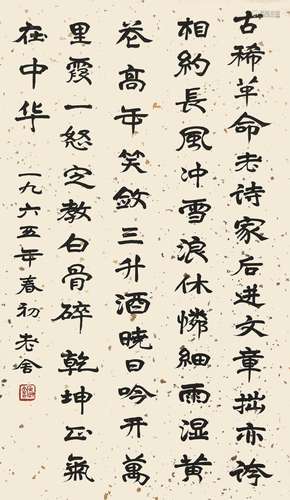 古稀革命老诗家后进文章拙亦誇
相約長風冲雪浪休憐細雨湿黄
花高年笑敛三升酒曉日吟开萬
里霞一怒定教白骨碎乾坤正氣
在中华
一九六五年春初老舍